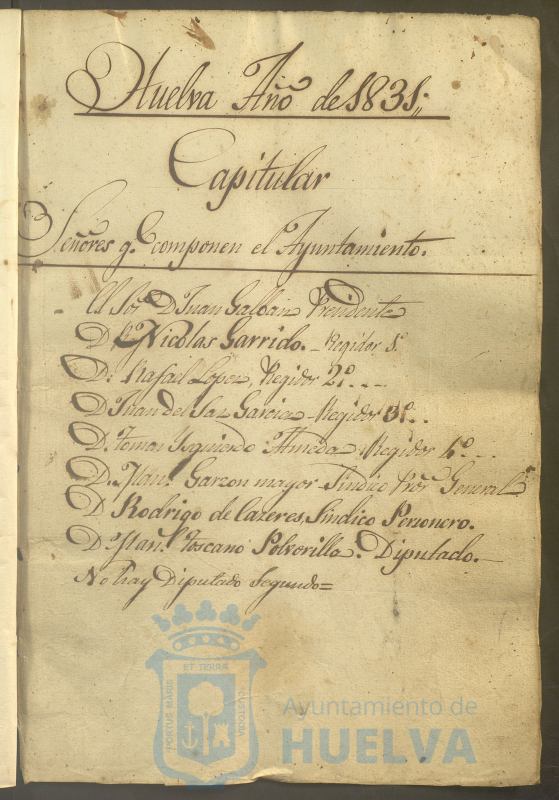 Huelva Año de 1831;,
Capitular
Señores q.e componen el Ayuntamiento.
El Sor. D Juan Galban Presidente
D. Nicolas Garrido. - Regidor 1.º
D.n Rafael Lopez, Regidor 2.º ...
D Juan del Saz Garcia - Regidor 3.º ..
D. Tomas Ysquierdo Almeda, Regidor 4.º ...
D. Man.l Garzon mayor Sindico Pror. General
D Rodrigo de Cazeres, Sindico Perzonero.
D. Man.l Toscano Polvorilla. Diputado.
No hay Diputado Segundo=
ET TERRÆ
PORTUS MARIS
CUSTODIA
Ayuntamiento de
HUELVA